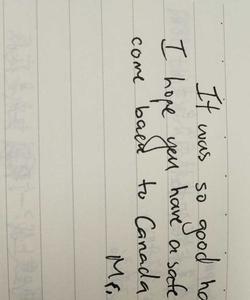 It was so good ha
I hope you have a safe
come baed to Canada
Mr.